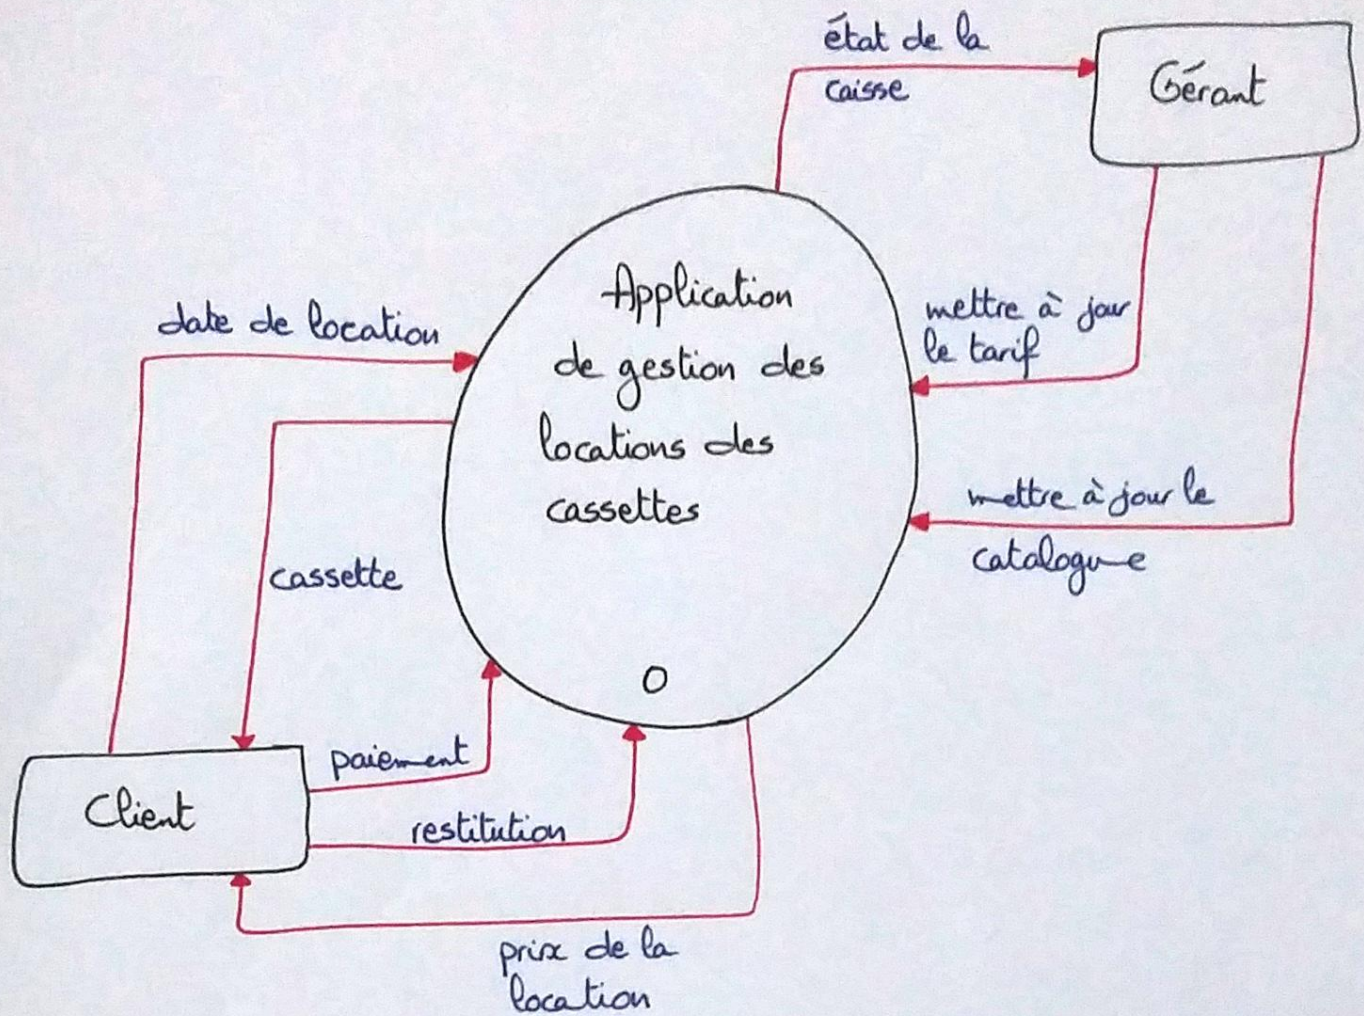 état de la
caisse
Gérant
Application
de gestion des
locations des
cassettes
O
date de location
mettre à jour
le tarif
mettre à jour le
catalogue
cassette
paiement
Client
restitution
prix de la
location